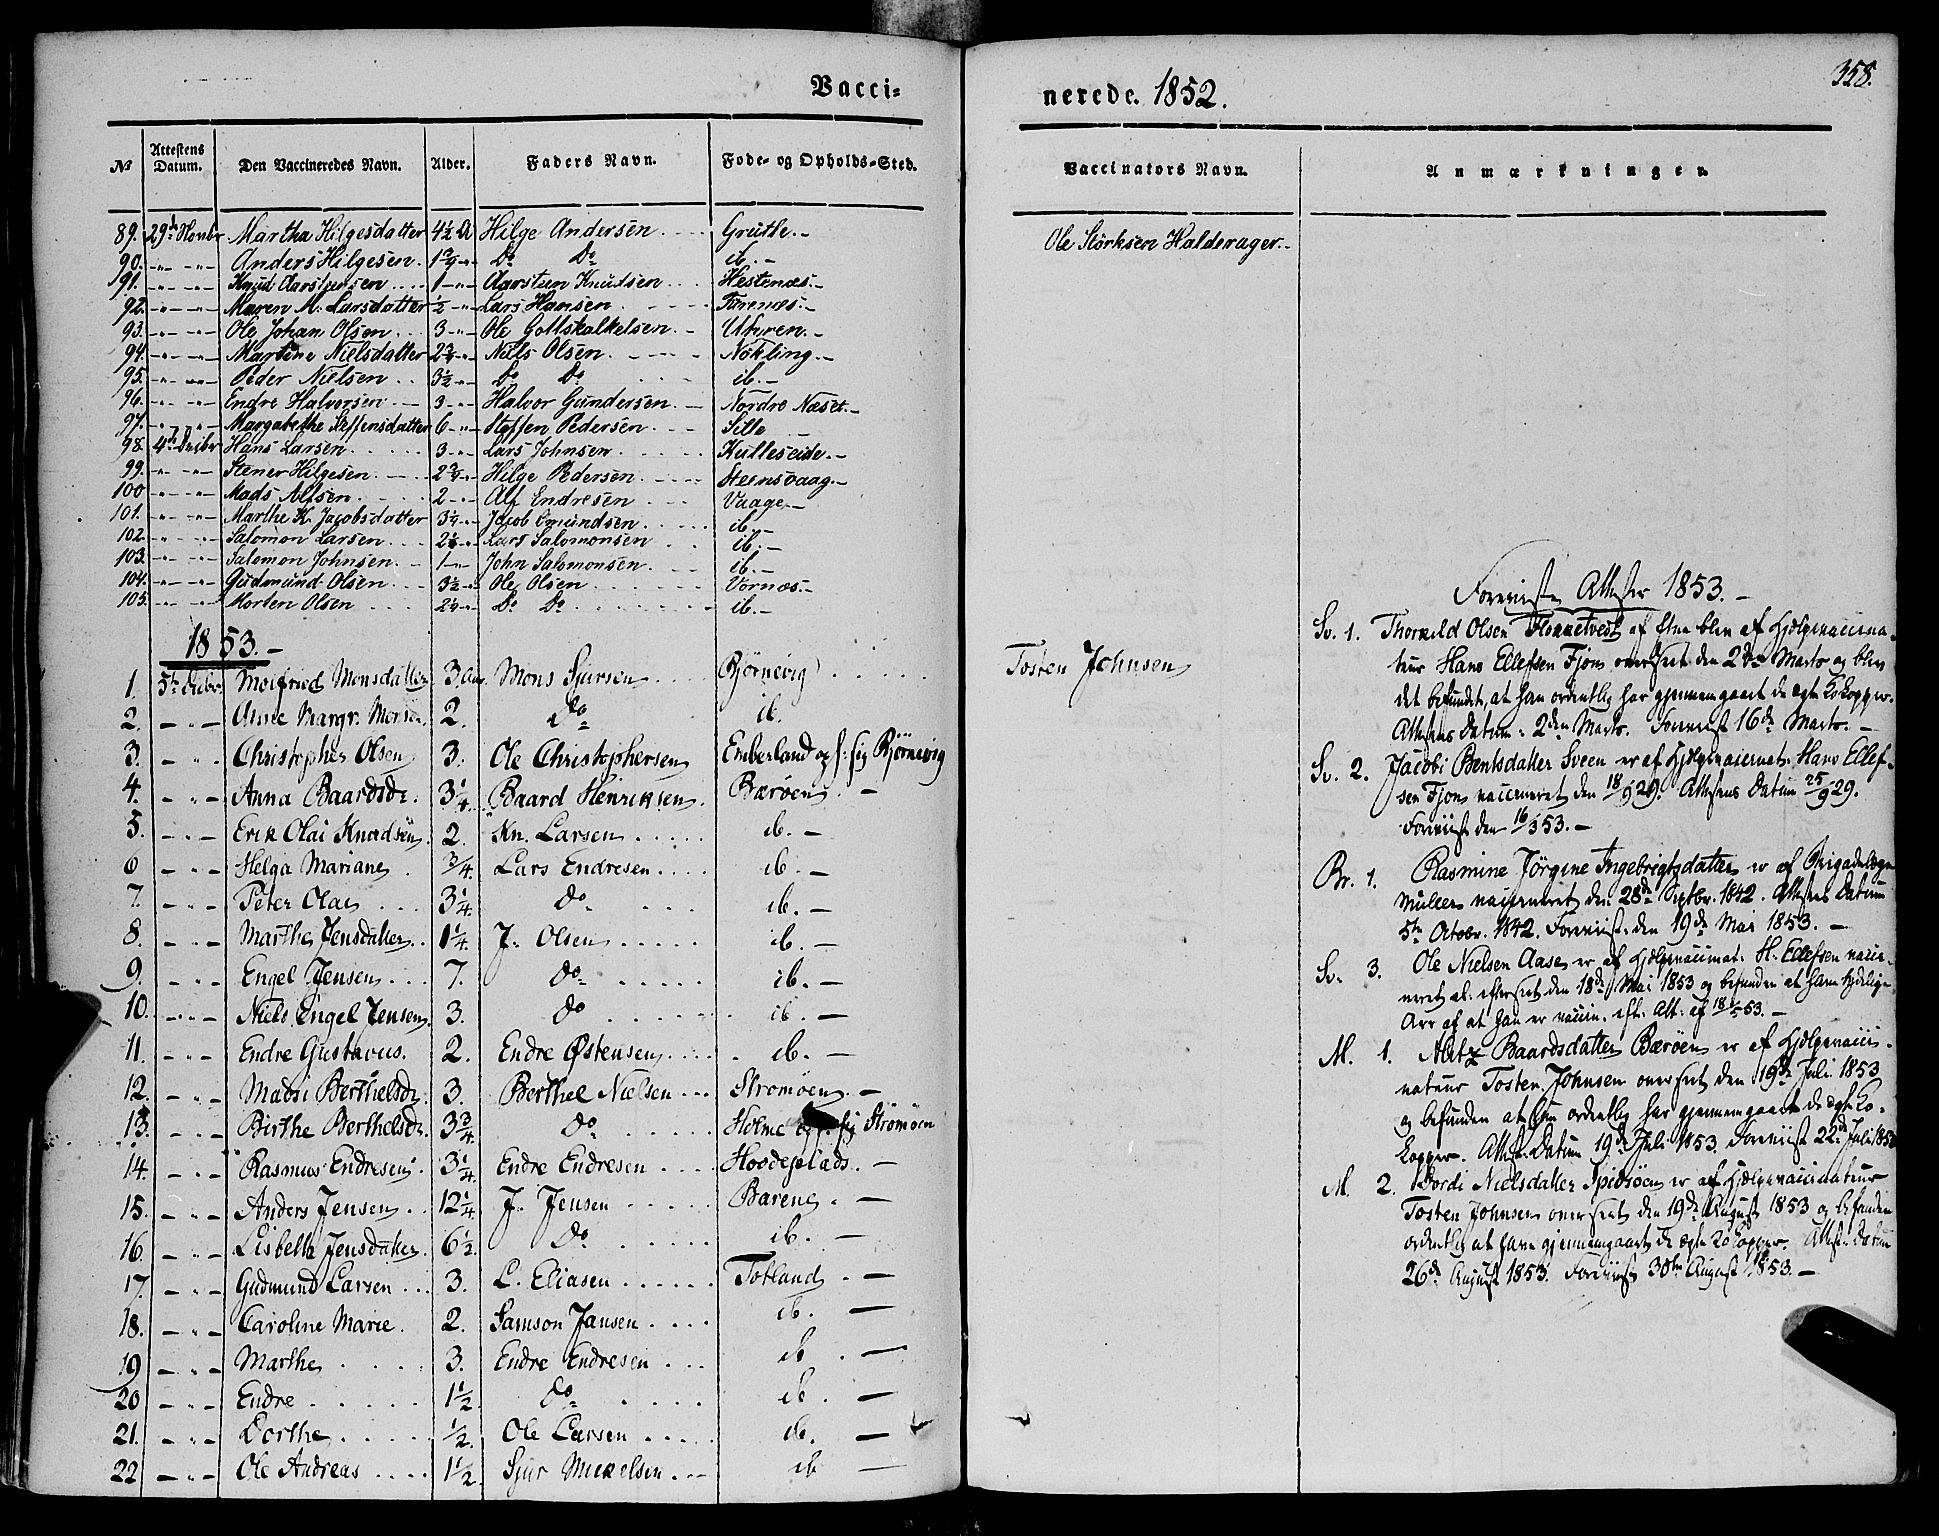 Vacci-
№ Attestens Datum. Den Vaccineredes Navn. Alder. Faders Navn. Føde- og Opholds-Sted.
89. 29de Novbr Martha Hilgesdatter 4½ A Hilge Andersen Grutle.-
90. -"- -"- Anders Hilgesen. Do Do ib.-
91. -"- -"- Knud Aarstensen 1 -"- Aarsten Knudsen Hestenæs.-
92. -"- -"- Maren M. Larsdatter ½ -"- Lars Hansen Turenæs.-
93. -"- -"- Ole Johan Olsen 3 -"- Ole Gottskalkelsen.
94. -"- -"- Martine Nielsdatter 2¾ -"- Niels Olsen Nøkling.-
95. -"- -"- Peder Nielsen 3½ -"- Do Do ib.-
96. -"- -"- Endre Halvorsen 3 -"- Halvor Gundersen. Nordre Næset.-
97. -"- -"- Margarethe Steffensdatter 6 -"- Steffen Pedersen Sille
98. 4de Decbr Hans Larsen 3 -"- Lars Johnsen Kulleseide.-
99. -"- -"- Stener Hilgesen 2¾ -"- Hilge Pedersen Steensvaag.-
100 -"- -"- Mads Alfsen 2 -"- Alf Endresen Vaage.-
101. -"- -"- Marthe K. Jacobsdatter 3¼ -"- Jacob Omundsen ib.-
102. -"- -"- Salomon Larsen Lars Salomonsen ib.-
103. -"- -"- Salomon Johnsen 1 -"- John Salomonsen ib.-
104. -"- -"- Gudmund Olsen 3½ -"- Ole Olsen Vornæs.-
105. -"- -"- Morten Olsen 2¼ -"- Do Do ib.-
1853.-
1. 5te Decbr Monsdatter 3 Aar Mons Sjursen Bjørnevig
2. -"- Anne Margr. Monsdr. 2. Do ib.
3. -"- Christopher Olsen 3. Ole Christophersen Emberland og f: sig Bjørnevig
4. -"- Anna Baardsdr. 3¼. Baard Henriksen. Bærøen. -
5. -"- Erik Olai Knudsen 2. Kn. Larsen ib. -
6 -"- Helga Mariane ¾. Lars Endresen ib. -
7. -"- Peter Olai 3¼. Do ib. -
8. -"- Marthe Jensdatter 1¼. J. Olsen ib. -
9. -"- Engel Jensen 7. Do ib. -
10. -"- Niels Engel Jensen. 3. Do ib. -
11. -"- Endre Gustavus. 2. Endre Østensen ib. -
12. -"- Madsi Berthelsdr. 3. Berthel Nielsen Strømøen. -
13. -"- Birthe Berthelsdr. 3¾. Do Holme og f. sig Strømøen
14. -"- Rasmus Endresen. 3¼. Endre Endresen Hovdeplads. -
15. -"- Anders Jensen 12¼. J. Jensen Barene. -
16. -"- Lisbetha Jensdatter. 6½. Do ib. -
17. -"- Gudmund Larsen 3. L. Eliasen Totland. -
18. -"- Caroline Marie. 2. Samson Jansen ib. -
19 -"- Marthe 3. Endre Endresen ib. -
20 -"- Endre 1½. Do ib. -
21. -"- Dorthe ½. Ole Larsen ib. -
22 -"- Ole Andreas 1½. Sjur Mikelsen ib -
nerede. 1852.
358.
Vaccinators Navn. Anmærkninger.
Ole Størksen Halderager.-
Tosten Johnsen
Foreviiste Attester 1853.-
Sv. 1. Thorkild Olsen Flokketvedt af Etne blev af Hjelpevaccina-
teur Hans Ellefsen Fjon overseet den 2den Marts og blev
det befundet, at han ordentlig har gjennemgaaet de ægte Kokopper.
Attestens Datum: 2den Marts. Foreviist 16de Marts.-
Sv. 2. Jacobi Bentsdatter Sveen er af Hjelpevaccinat. Hans Ellef-
sen Fjon vaccineret den 18/9 29. Attestens Datum 25/9 29.
Foreviist den 16/3 53.-
Br. 1. Rasmine Jørgine Ingebrigtsdatter er af Brigadelæge
Müller vaccineret den 28de Septbr. 1842. Attestens Datum
5te Octobr. 1842. Foreviist den 19de Mai 1853.-
Sv. 3. Ole Nielsen Aase er af Hjelpevaccinat. H. Ellefsen vacci-
neret al. efterseet den 18de Mai 1853 og befunden at have tydelige
Arr af at han er vaccin. eft. Att. af 18/5 53.-
M. 1. Baardsdatter Bærøen er af Hjelpevacci-
nateur Tosten Johnsen overseet den 19de Juli 1853
og befunden at hun ordentlig har gjennemgaaet de ægte Ko-
kopper. Attest. Datum 19de Juli 1853. Foreviist 22de Juli 1853
M. 2. Dordi Nielsdatter Spidsøen er af Hjelpevaccinateur
Tosten Johnsen overseet den 19de August 1853 og befunden
ordentlig at have gjennemgaaet de ægte Kokopper. Attest. Datum
26de August 1853. Foreviist 30te August 1853.-